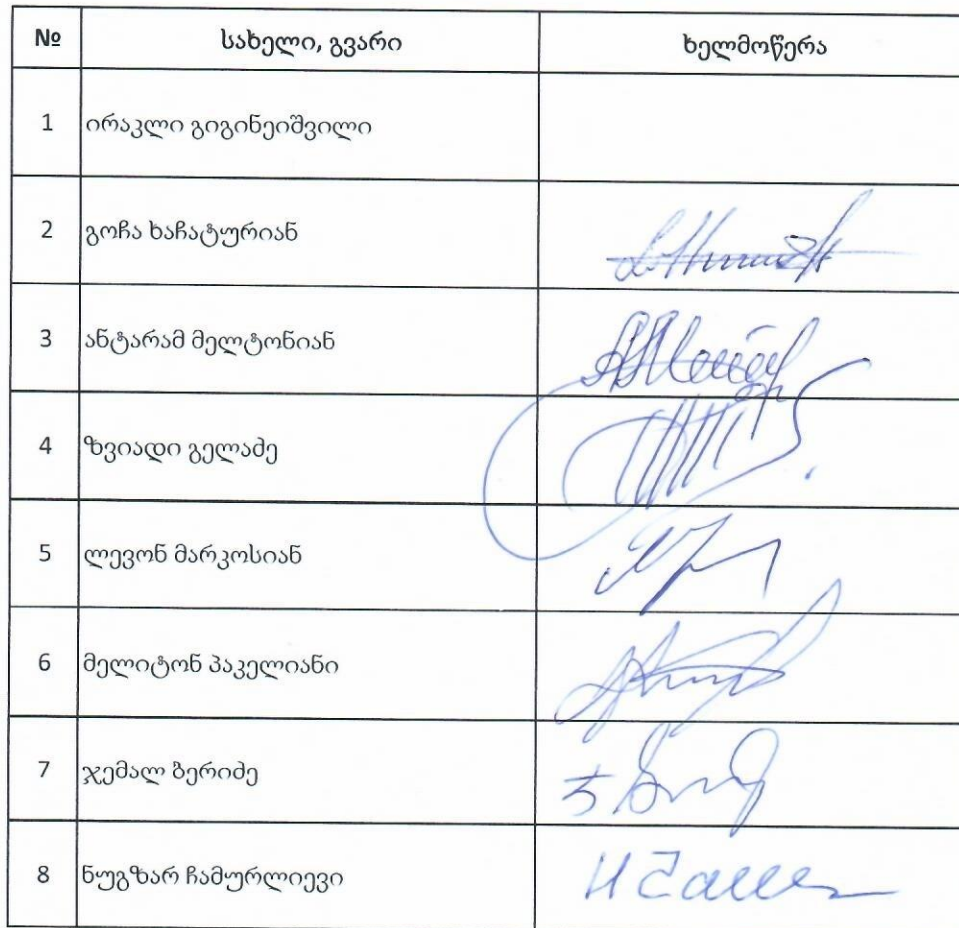 № სახელი, გვარი ხელმოწერა
1 ირაკლი გიგინეიშვილი
2 გოჩა ხაჩატურიან
3 ანტარამ მელტონიან
4 ზვიადი გელაძე
5 ლევონ მარკოსიან
6 მელიტონ პაკელიანი
7 ჯემალ ბერიძე
8 ნუგზარ ჩამურლიევი